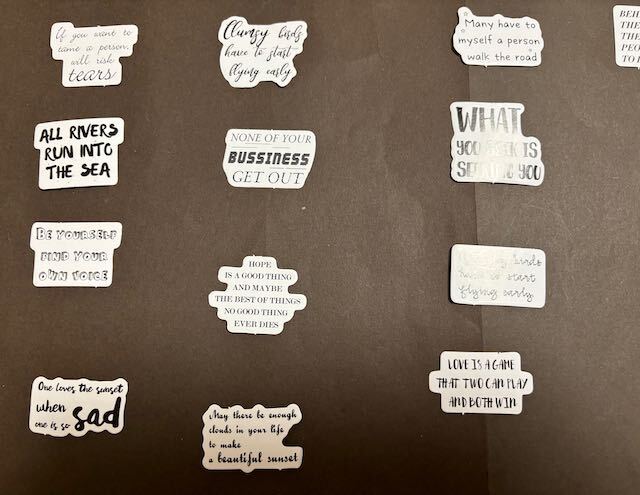 If you want to
tame a person,
will risk
tears
Clumsy birds
have to start
flying early
Many have to
myself a person
walk the road
BEH
THE
THE
PEO
TO
ALL RIVERS
RUN INTO
THE SEA
NONE OF YOUR
BUSSINESS
GET OUT
WHAT
YOU SEEK IS
SEEKING YOU
BE YOURSELF
FIND YOUR
OWN VOICE
HOPE
IS A GOOD THING
AND MAYBE
THE BEST OF THINGS
NO GOOD THING
EVER DIES
birds
have to start
flying early
LOVE IS A GAME
THAT TWO CAN PLAY
AND BOTH WIN
One loves the sunset
when
one is so sad
May there be enough
clouds in your life
to make
a beautiful sunset